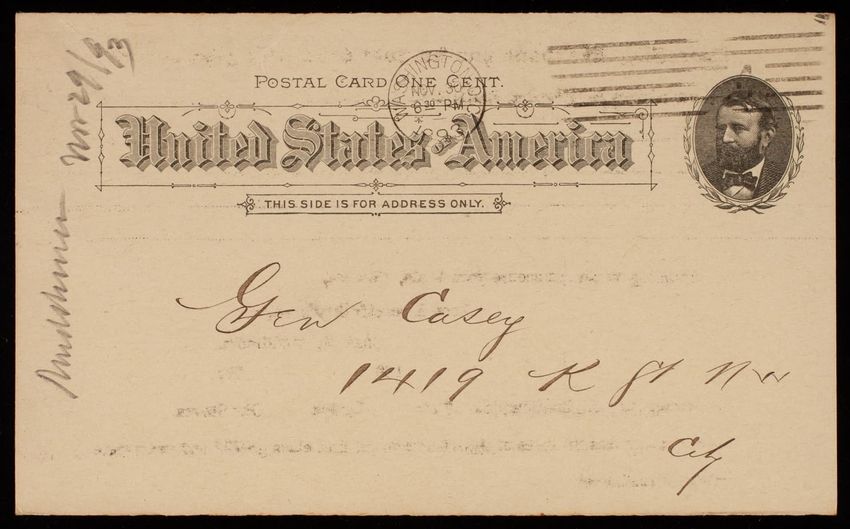 POSTAL CARD ONE CENT.
WASHINGTON, D.C.
NOV. 30
6 30 PM
United States of America
THIS SIDE IS FOR ADDRESS ONLY.
Gen Casey
1419 K St NW
City
Nov 29/93